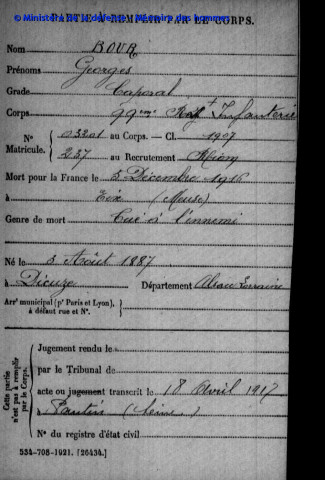 © Ministère de la défense - Mémoire des hommes
PARTIE À REMPLIR PAR LE CORPS.
Nom BOUR
Prénoms Georges
Grade Caporal
Corps 99me Regt Infanterie
N° 03201 au Corps. — Cl. 1907
Matricule. 237 au Recrutement Riom
Mort pour la France le 5 Décembre 1916
à Eix (Meuse)
Genre de mort Tué à l'ennemi
Né le 5 Août 1887
à Dieuze Département Alsace Lorraine
Arrt municipal (pr Paris et Lyon),
à défaut rue et N°.
Cette partie n'est pas à remplir par le Corps.
Jugement rendu le
par le Tribunal de
acte ou jugement transcrit le 18 Avril 1917
à Pantin (Seine)
N° du registre d'état civil
534-708-1921. [26434.]